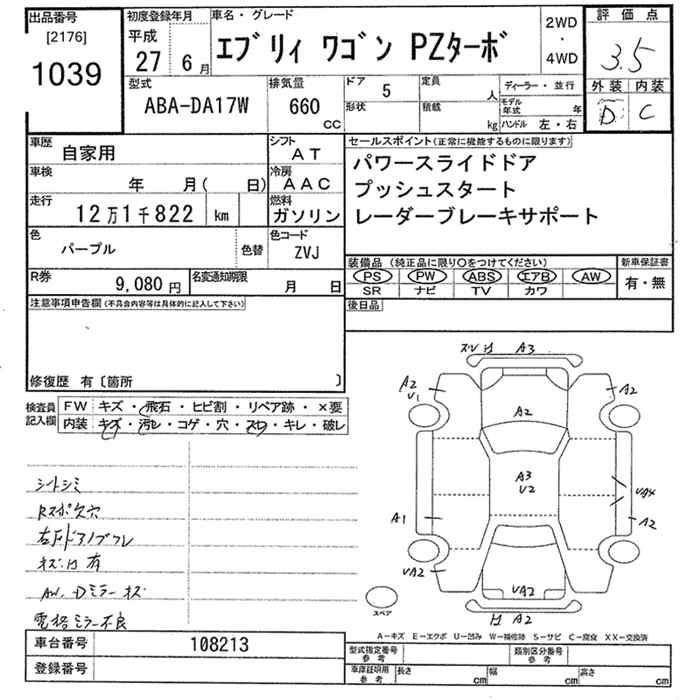 出品番号
[2176]
1039
初度登録年月
平成
27 6月
車名・グレード
エブリィ ワゴン PZターボ
2WD
・
4WD
評価点
3.5
外装 内装
D C
型式
ABA-DA17W
排気量
660
cc
ドア
5
形状
定員
人
積載
kg
ディーラー・並行
モデル年式 年
ハンドル 左・右
車歴
自家用
シフト
AT
車検
年 月( 日)
冷房
AAC
走行
12万1千822 km
燃料
ガソリン
色
パープル
色替
色コード
ZVJ
R券
9,080円
名変通知期限
月 日
セールスポイント(正常に機能するものに限ります)
パワースライドドア
プッシュスタート
レーダーブレーキサポート
装備品 (純正品に限り○をつけてください)
PS PW ABS エアB AW
SR ナビ TV カワ
新車保証書
有・無
後日品
注意事項申告欄(不具合内容等は具体的に記入して下さい)
修復歴 有〔箇所 〕
検査員
記入欄
FW キズ・飛石・ヒビ割・リペア跡・×要
内装 キズ・汚レ・コゲ・穴・スレ・キレ・破レ
シートシミ
右下ドアノブフレ
キズ凹有
AW、Dミラーキズ
電格ミラー不良
A3
A2
U1
A2
A2
A3
U2
A1
A2
UA2
UA2
凹 A2
スペア
A-キズ E-エクボ U-凹み W-補修跡 S-サビ C-腐食 XX-交換済
車台番号
108213
登録番号
型式指定番号
参考
類別区分番号
参考
車庫証明用
参考
長さ cm
幅 cm
高さ cm